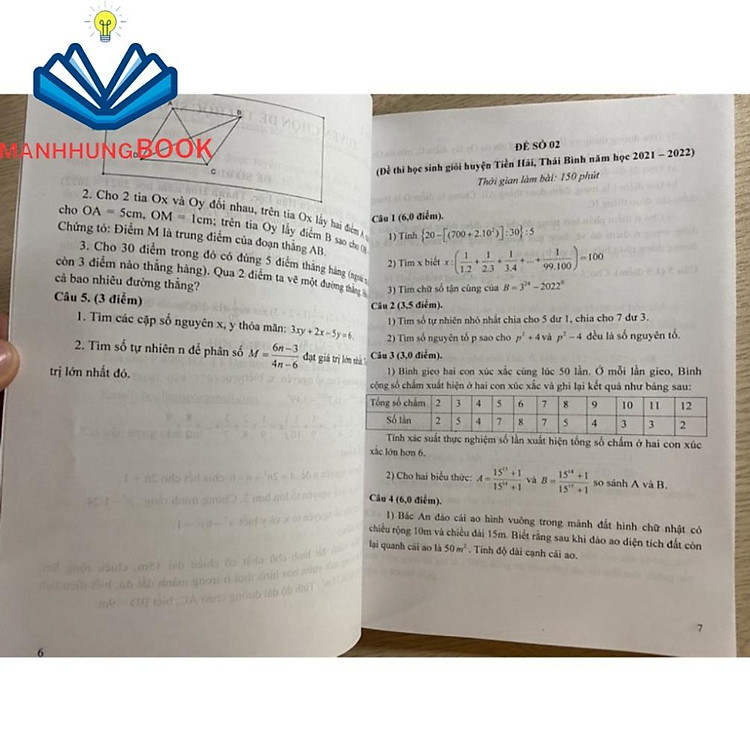 MANHHUNGBOOK
A
B
D
C
2. Cho 2 tia Ox và Oy đối nhau, trên tia Ox lấy hai điểm A
cho OA = 5cm, OM = 1cm; trên tia Oy lấy điểm B sao cho
Chứng tỏ: Điểm M là trung điểm của đoạn thẳng AB.
3. Cho 30 điểm trong đó có đúng 5 điểm thẳng hàng (ngoài
còn 3 điểm nào thẳng hàng). Qua 2 điểm ta vẽ một đường thẳng
cả bao nhiêu đường thẳng?
Câu 5. (3 điểm)
1. Tìm các cặp số nguyên x, y thỏa mãn: 3xy + 2x − 5y = 6.
2. Tìm số tự nhiên n để phân số M = (6n − 3)/(4n − 6) đạt giá trị lớn nhất
trị lớn nhất đó.
6
ĐỀ SỐ 02
(Đề thi học sinh giỏi huyện Tiền Hải, Thái Bình năm học 2021 – 2022)
Thời gian làm bài: 150 phút
Câu 1 (6,0 điểm).
1) Tính {20 − [(700 + 2.10²)]:30}:5
2) Tìm x biết x:(1/1.2 + 1/2.3 + 1/3.4 + ... + 1/99.100) = 100
3) Tìm chữ số tận cùng của B =
Câu 2 (3,5 điểm).
1) Tìm số tự nhiên nhỏ nhất chia cho 5 dư 1, chia cho 7 dư 3.
2) Tìm số nguyên tố p sao cho p² + 4 và p² − 4 đều là số nguyên tố.
Câu 3 (3,0 điểm).
1) Bình gieo hai con xúc xắc cùng lúc 50 lần. Ở mỗi lần gieo, Bình
cộng số chấm xuất hiện ở hai con xúc xắc và ghi lại kết quả như bảng sau:
Tổng số chấm 2 3 4 5 6 7 8 9 10 11 12
Số lần 2 5 4 7 8 7 5 4 3 3 2
Tính xác suất thực nghiệm số lần xuất hiện tổng số chấm ở hai con xúc
xắc lớn hơn 6.
2) Cho hai biểu thức: A = và B = so sánh A và B.
Câu 4 (6,0 điểm).
1) Bác An đào cái ao hình vuông trong mảnh đất hình chữ nhật có
chiều rộng 10m và chiều dài 15m. Biết rằng sau khi đào ao diện tích đất còn
lại quanh cái ao là 50m². Tính độ dài cạnh cái ao.
7